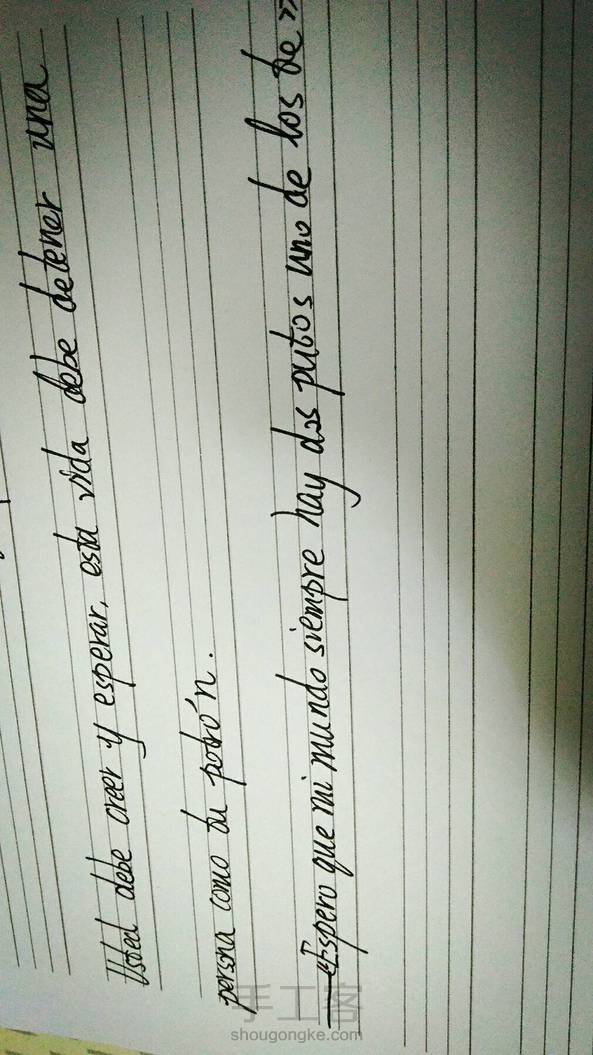 Usted debe creer y esperar, esta vida debe detener una
persona como tu potro'n.
—《Espero que mi mundo siempre hay dos putos uno de los de》
手工客
shougongke.com